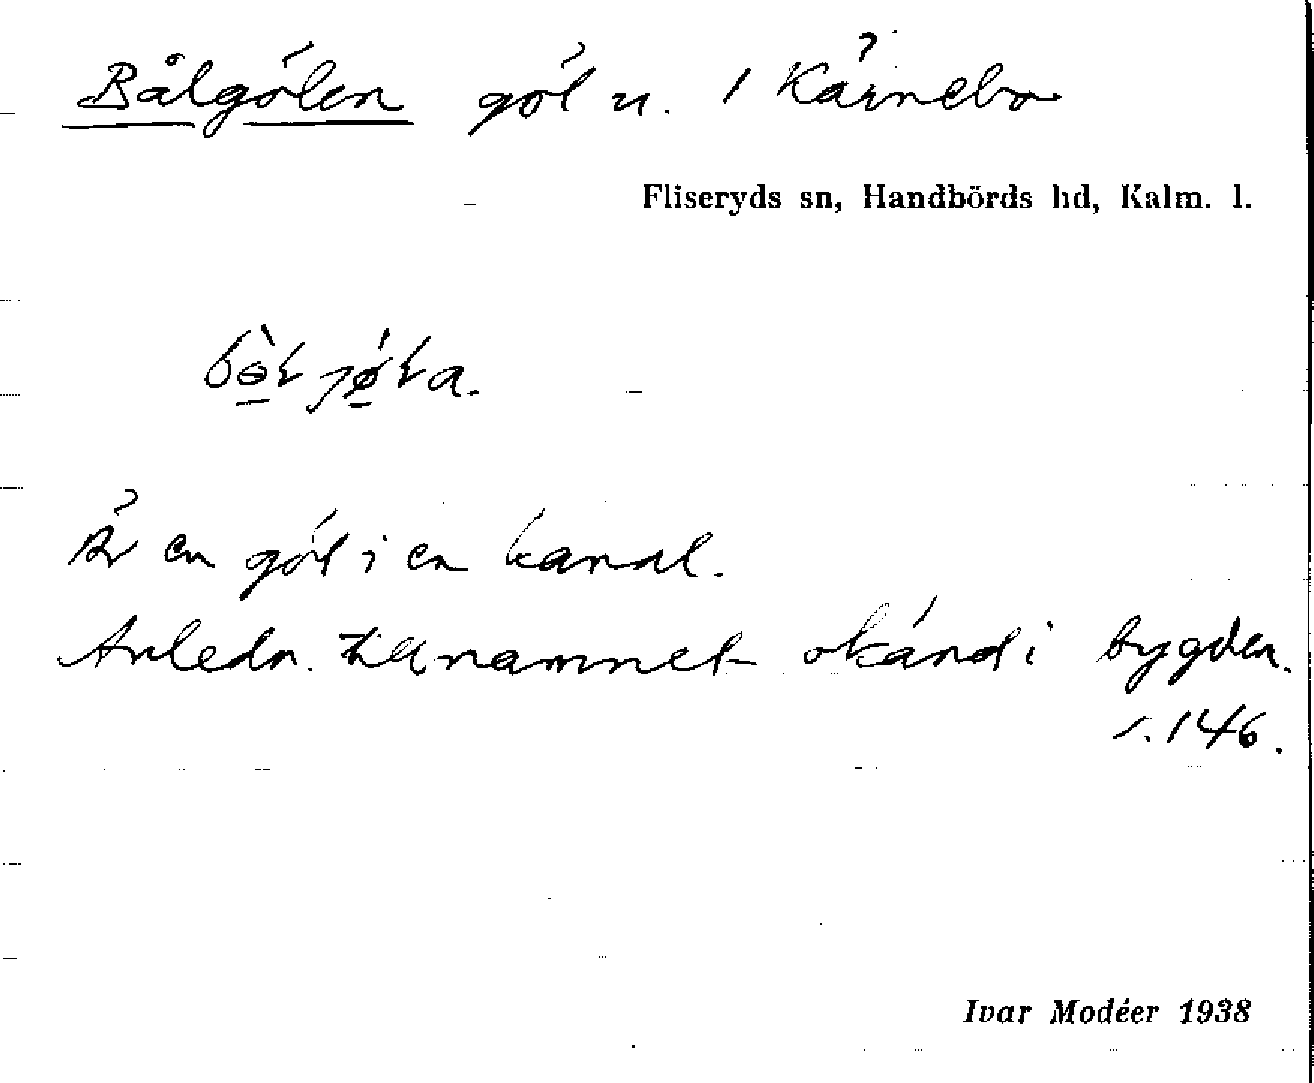 Bålgölen göl n. / Kärnebo
Fliseryds sn, Handbörds hd, Kalm. l.
Är en göl i en kanal.
Anledn. till namnet okänd i bygden.
s. 146.
Ivar Modéer 1938